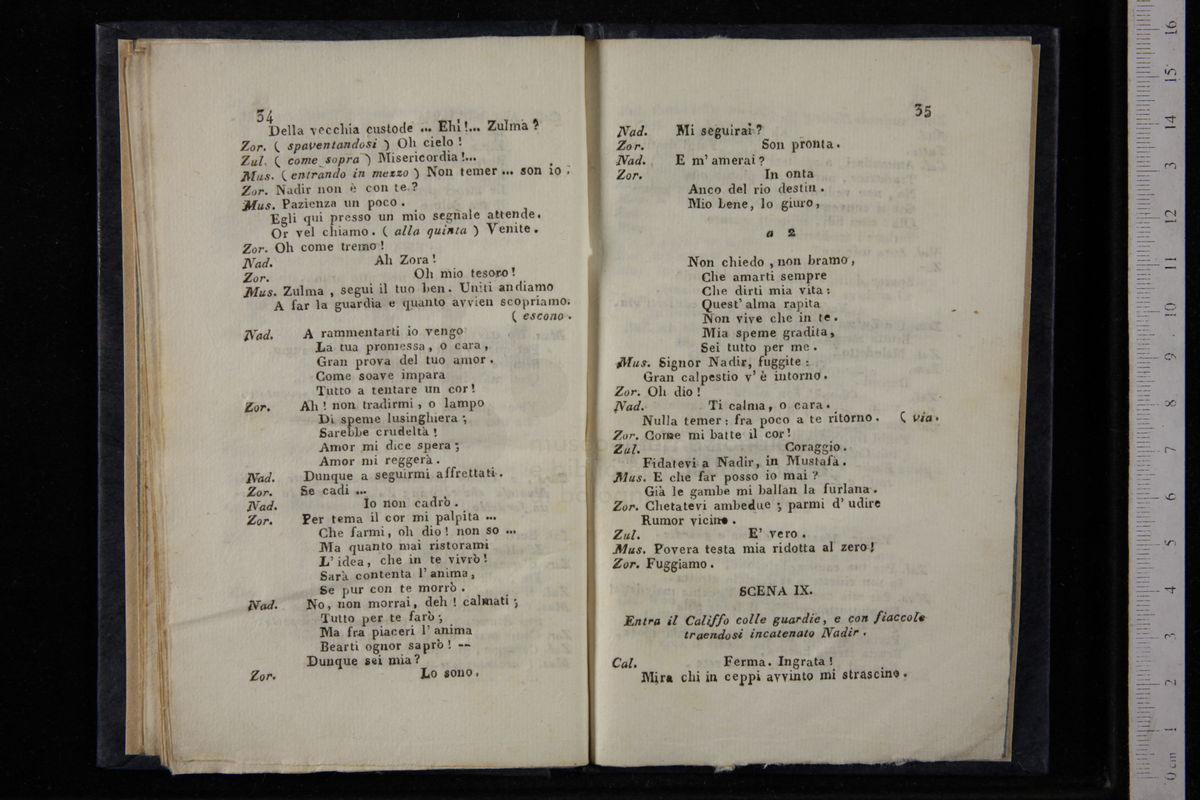 34
Della vecchia custode ... Ehi!... Zulma?
Zor. ( spaventandosi ) Oh cielo!
Zul. ( come sopra ) Misericordia!...
Mus. ( entrando in mezzo ) Non temer ... son io.
Zor. Nadir non è con te?
Mus. Pazienza un poco.
Egli qui presso un mio segnale attende.
Or vel chiamo. ( alla quinta ) Venite.
Zor. Oh come tremo!
Nad. Ah Zora!
Zor. Oh mio tesoro!
Mus. Zulma, segui il tuo ben. Uniti andiamo
A far la guardia e quanto avvien scopriamo.
( escono.
Nad. A rammentarti io vengo
La tua promessa, o cara,
Gran prova del tuo amor.
Come soave impara
Tutto a tentare un cor!
Zor. Ah! non tradirmi, o lampo
Di speme lusinghiera;
Sarebbe crudeltà!
Amor mi dice spera;
Amor mi reggerà.
Nad. Dunque a seguirmi affrettati.
Zor. Se cadi ...
Nad. Io non cadrò.
Zor. Per tema il cor mi palpita ...
Che farmi, oh dio! non so ...
Ma quanto mai ristorami
L'idea, che in te vivrò!
Sarà contenta l'anima,
Se pur con te morrò.
Nad. No, non morrai, deh! calmati;
Tutto per te farò;
Ma fra piaceri l'anima
Bearti ognor saprò! --
Dunque sei mia?
Zor. Lo sono.
35
Nad. Mi seguirai?
Zor. Son pronta.
Nad. E m'amerai?
Zor. In onta
Anco del rio destin.
Mio bene, lo giuro,
a 2
Non chiedo, non bramo,
Che amarti sempre
Che dirti mia vita:
Quest'alma rapita
Non vive che in te.
Mia speme gradita,
Sei tutto per me.
Mus. Signor Nadir, fuggite:
Gran calpestio v'è intorno.
Zor. Oh dio!
Nad. Ti calma, o cara.
Nulla temer: fra poco a te ritorno. ( via.
Zor. Come mi batte il cor!
Zul. Coraggio.
Fidatevi a Nadir, in Mustafà.
Mus. E che far posso io mai?
Già le gambe mi ballan la furlana.
Zor. Chetatevi ambedue; parmi d'udire
Rumor vicino.
Zul. E' vero.
Mus. Povera testa mia ridotta al zero!
Zor. Fuggiamo.
SCENA IX.
Entra il Califfo colle guardie, e con fiaccole
traendosi incatenato Nadir.
Cal. Ferma. Ingrata!
Mira chi in ceppi avvinto mi strascino.
0 cm 1 2 3 4 5 6 7 8 9 10 11 12 13 14 15 16